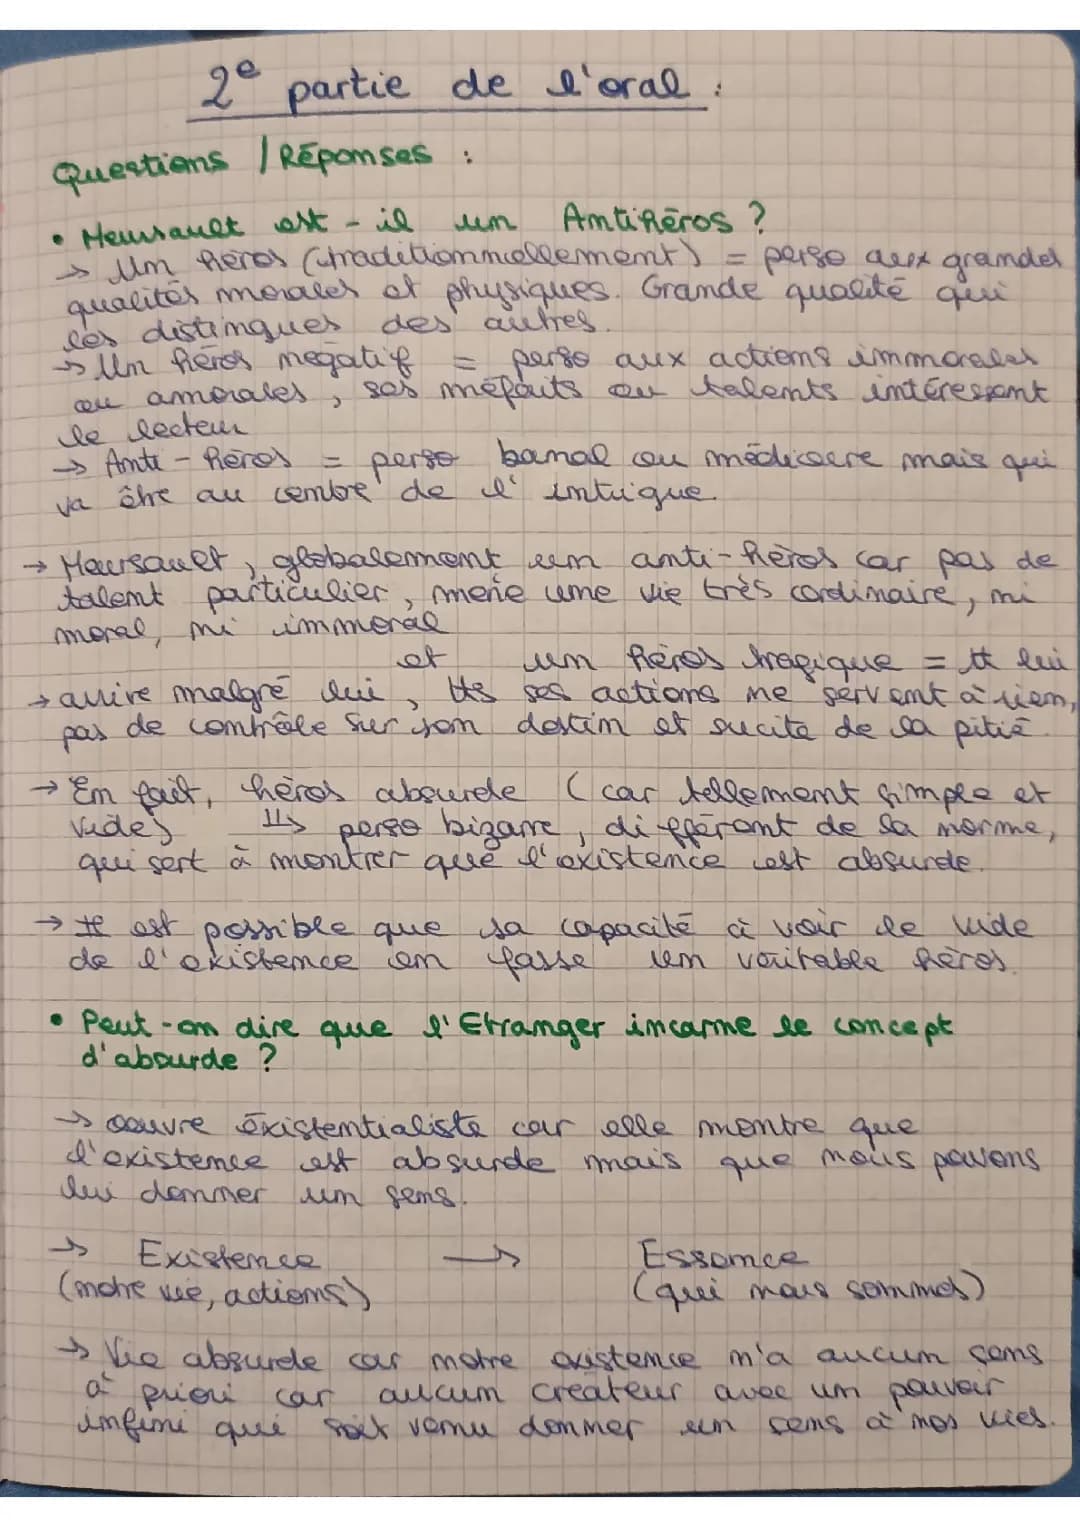 2e partie de l'oral :
Questions / Réponses :
• Meursault est-il un Antihéros ?
→ Un héros (traditionnellement) = perso aux grandes
qualités morales et physiques. Grande qualité qui
les distingues des autres.
→ Un héros négatif = perso aux actions immorales
ou amorales, ses méfaits ou talents intéressent
le lecteur
→ Anti-héros = perso banal ou médiocre mais qui
va être au centre de l'intrigue.
→ Meursault, globalement un anti-héros car pas de
talent particulier, mène une vie très ordinaire, ni
moral, ni immoral
et un héros tragique = tt lui
→ arrive malgré lui, tts ses actions ne servent à rien,
pas de contrôle sur son destin et sucite de la pitié.
→ En fait, héros absurde (car tellement simple et
vide) => perso bizarre, différent de la norme,
qui sert à montrer que l'existence est absurde.
→ Il est possible que sa capacité à voir le vide
de l'existence en fasse un véritable héros.
• Peut-on dire que l'Etranger incarne le concept
d'absurde ?
→ oeuvre éxistentialiste car elle montre que
l'existence est absurde mais que nous pouvons
lui donner un sens.
→ Existence → Essence
(notre vie, actions) (qui nous sommes)
→ Vie absurde car notre existence n'a aucun sens
à priori car aucun créateur avec un pouvoir
infini qui soit venu donner un sens à nos vies.